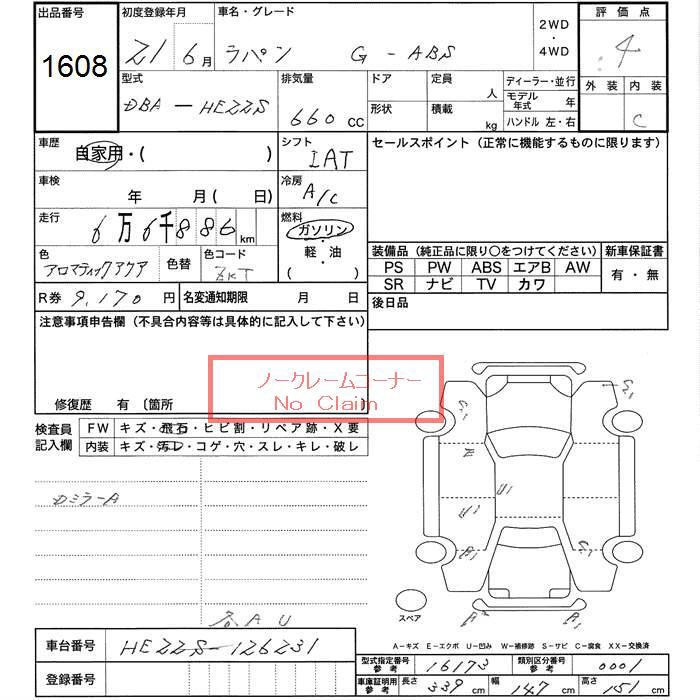 出品番号 初度登録年月 車名・グレード 2WD・4WD 評価点
1608 21 6月 ラパン G-ABS 4
型式 排気量 ドア 定員 人 ディーラー・並行 外装 内装
DBA-HE22S 660cc 形状 積載 kg モデル年式 年 C
ハンドル 左・右
車歴 自家用・( ) シフト IAT セールスポイント(正常に機能するものに限ります)
車検 年 月( 日) 冷房 A/C
走行 6万6千886km 燃料 ガソリン・軽・油( )
色 アロマティックアクア 色替 色コード ZKT
装備品(純正品に限り○をつけてください) 新車保証書
PS PW ABS エアB AW 有・無
SR ナビ TV カワ
R券 9,170円 名変通知期限 月 日 後日品
注意事項申告欄(不具合内容等は具体的に記入して下さい)
ノークレームコーナー
No Claim
修復歴 有〔箇所
検査員記入欄 FW キズ・飛石・ヒビ割・リペア跡・X要
内装 キズ・汚レ・コゲ・穴・スレ・キレ・破レ
ミラーA
A U
スペア
A-キズ E-エクボ U-凹み W-補修跡 S-サビ C-腐食 XX-交換済
車台番号 HE22S-126231
登録番号
型式指定番号 参考 16173 類別区分番号 参考 0001
車庫証明用 参考 長さ 339cm 幅 147cm 高さ 151cm